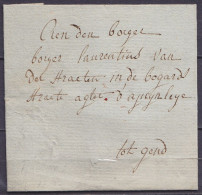 Aen den borger
borger laurentius van
der Straeten in de bogard
Straete agter d'
tot gend